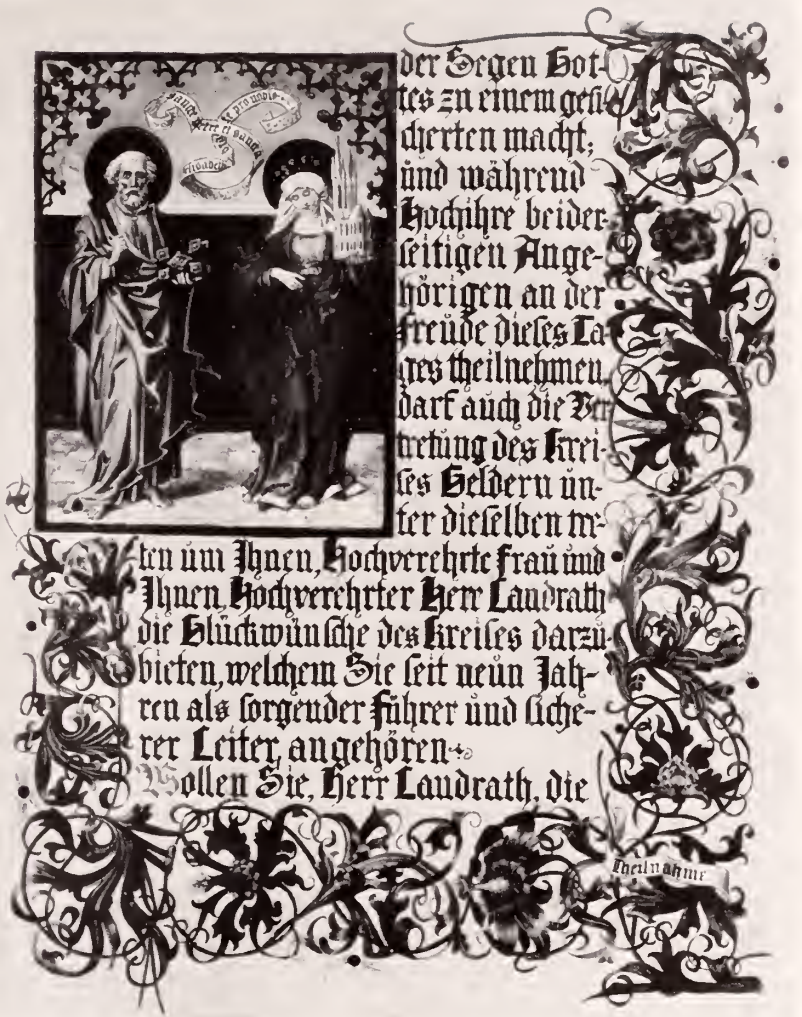 Sancte Petre et sancta
Elisabeth
ora pro nobis
der Segen Got-
tes zu einem gesi-
cherten macht;
und während
Hochihre beider-
seitigen Ange-
hörigen an der
Freude dieses Ta
ges theilnehmen,
darf auch die Ver
tretung des Krei-
ses Geldern un-
ter dieselben tre-
ten um Ihnen, Hochverehrte Frau und
Ihnen, Hochverehrter Herr Landrath
die Glückwünsche des Kreises darzu-
bieten, welchem Sie seit neun Jah-
ren als sorgender Führer und siche-
rer Leiter, angehören
Wollen Sie, Herr Landrath, die
Theilnahme